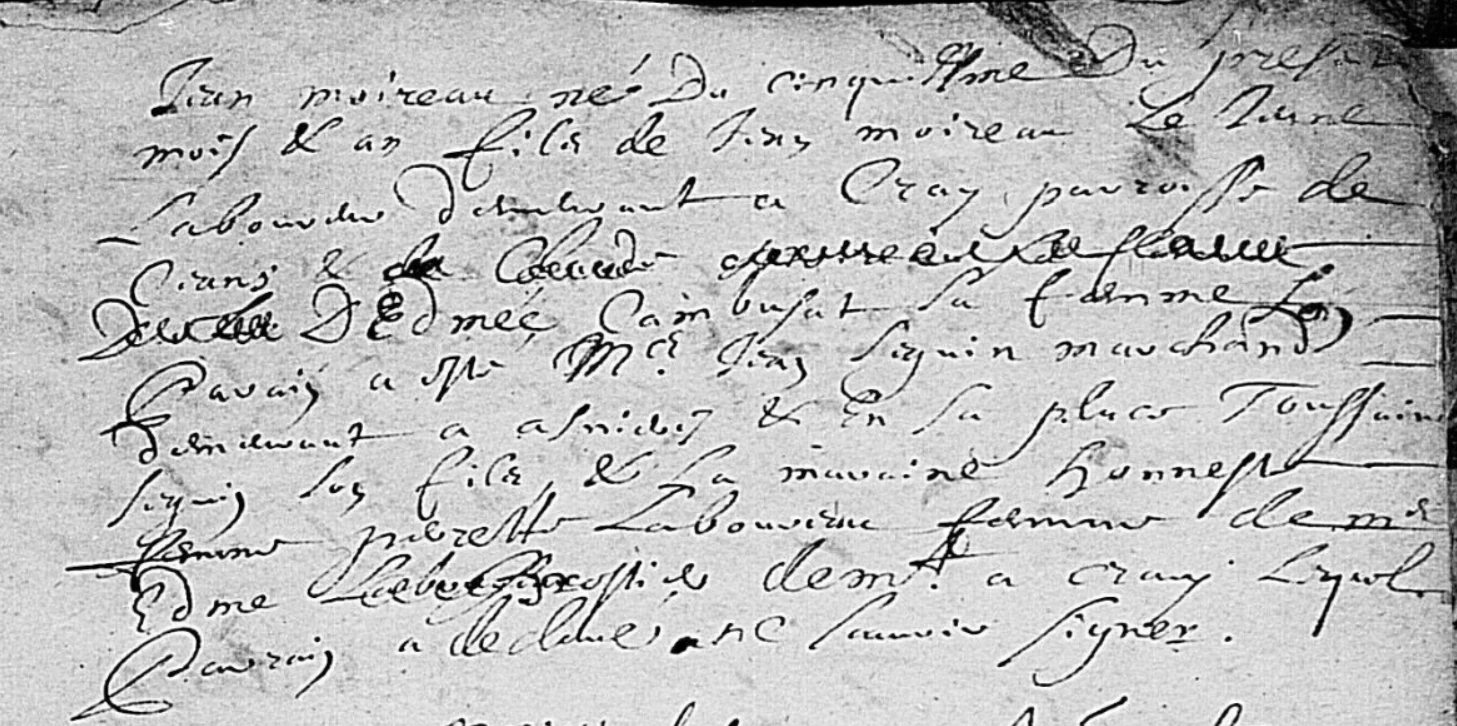 Jean moireau né Du cinquiesme Du presant
mois & an fils de Jean moireau Le Jeune
Laboureur demeurant a Cray parroisse de
& Claude
D Edmée Cambusat sa femme son
Parain a esté Me. Jean Seguin marchand
demeurant a asnieres & En sa place Toussain
Seguin son fils & La maraine honneste
femme pierrette Laboureau femme de me
Edme demt. a cray Lequel
Parrain a declaré ne scauoir signer.